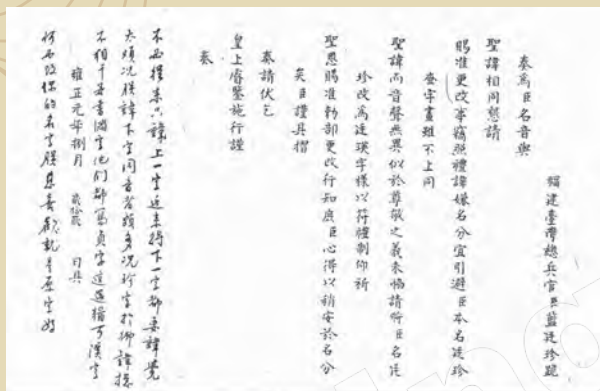 福建臺灣總兵官臣藍廷珍跪
奏為臣名音與
聖諱相同懇請
賜准更改事竊照禮諱嫌名分宜引避臣本名廷珍
查字畫雖不上同
聖諱而音聲無異似於尊敬之義未協請將臣名廷
珍改為廷瑛字樣以符禮制仰祈
聖恩賜准勅部更改行知庶臣心得以稍安於名分
矣臣謹具摺
奏請伏乞
皇上睿鑒施行謹
奏
不必從來只諱上一字近來將下一字都要諱覺
太煩况朕諱下字同音者頗多况珍字於御諱總
不相干若書滿字他們都寫貞字這還猶可漢字
雍正元年捌月 日具
何必改你的名字朕甚喜歡就是原字好